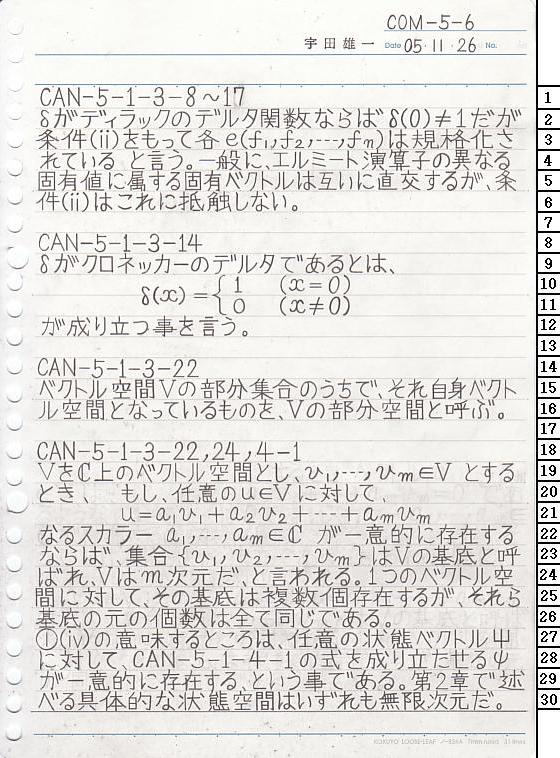 COM-5-6
宇田雄一 Date 05・11・26 No.
CAN-5-1-3-8〜17
δがディラックのデルタ関数ならばδ(0)≠1だが
条件(ii)をもって各e(f₁,f₂,…,fₙ)は規格化さ
れていると言う。一般に、エルミート演算子の異なる
固有値に属する固有ベクトルは互いに直交するが、条
件(ii)はこれに抵触しない。
CAN-5-1-3-14
δがクロネッカーのデルタであるとは、
δ(x)={ 1 (x=0)
0 (x≠0)
が成り立つ事を言う。
CAN-5-1-3-22
ベクトル空間Vの部分集合のうちで、それ自身ベクト
ル空間となっているものを、Vの部分空間と呼ぶ。
CAN-5-1-3-22,24,4-1
Vをℂ上のベクトル空間とし、v₁,…,vₘ∈Vとする
とき、 もし、任意のu∈Vに対して、
u=a₁v₁+a₂v₂+…+aₘvₘ
なるスカラー a₁,…,aₘ∈ℂ が一意的に存在する
ならば、集合{v₁,v₂,…,vₘ}はVの基底と呼
ばれ、Vはm次元だ、と言われる。1つのベクトル空
間に対して、その基底は複数個存在するが、それら
基底の元の個数は全て同じである。
①(iv)の意味するところは、任意の状態ベクトルΨ
に対して、CAN-5-1-4-1の式を成り立たせるψ
が一意的に存在する、という事である。第2章で述
べる具体的な状態空間はいずれも無限次元だ。
1
2
3
4
5
6
7
8
9
10
11
12
13
14
15
16
17
18
19
20
21
22
23
24
25
26
27
28
29
30
KOKUYO LOOSE-LEAF ノ-836A 7mm ruled 31 lines